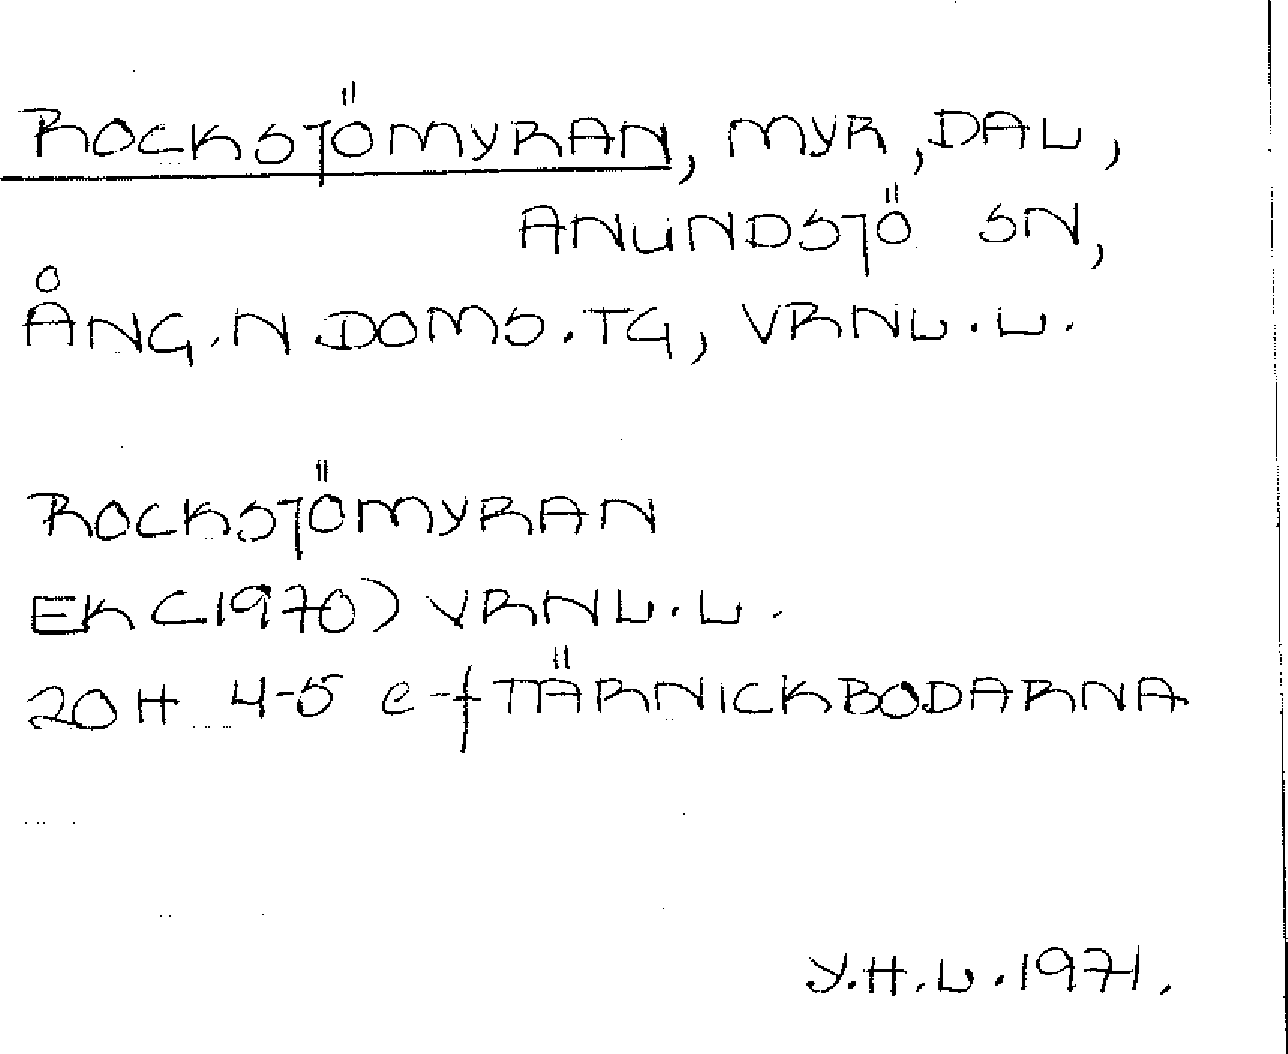 ROCKSJÖMYRAN, MYR, DAL,
ANUNDSJÖ SN,
ÅNG. N. DOMS. TG, VRNL. L.
ROCKSJÖMYRAN
EK (1970) VRNL. L.
20H 4-5 e-f TJÄRNICKBODARNA
Y.H.L. 1971.